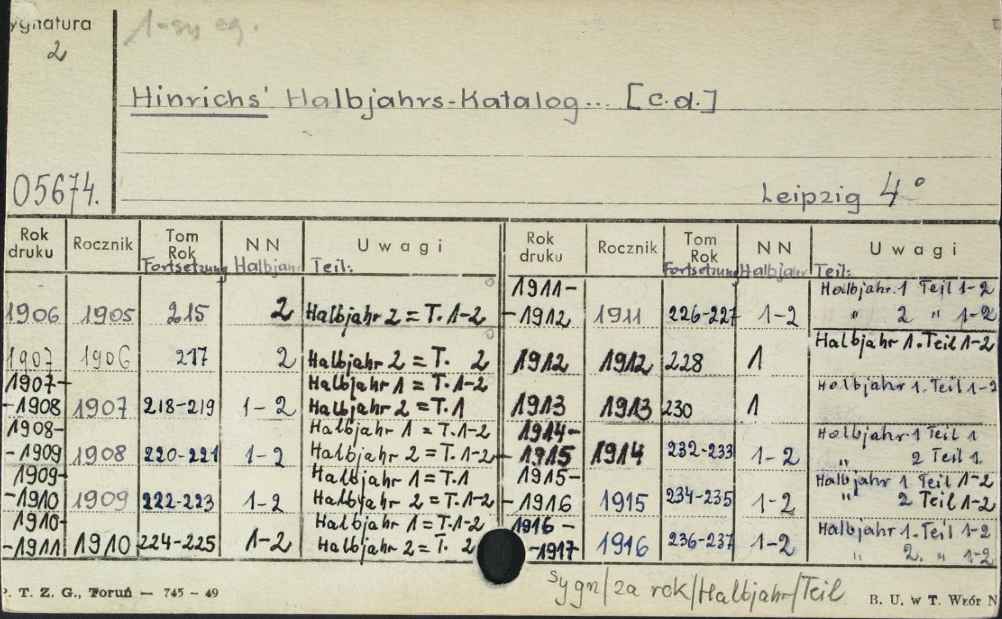 ygnatura
2
1-szy eg.
Hinrichs' Halbjahrs-Katalog... [c.d.]
05674.
Leipzig 4°
Rok druku Rocznik Tom Rok Fortsetzung NN Halbjahr Uwagi Teil:
1906 1905 215 2 Halbjahr 2 = T. 1-2
1907 1906 217 2 Halbjahr 2 = T. 2
1907- Halbjahr 1 = T. 1-2
-1908 1907 218-219 1-2 Halbjahr 2 = T. 1
1908- Halbjahr 1 = T. 1-2
-1909 1908 220-221 1-2 Halbjahr 2 = T. 1-2
1909- Halbjahr 1 = T. 1
-1910 1909 222-223 1-2 Halbjahr 2 = T. 1-2
1910- Halbjahr 1 = T. 1-2
-1911 1910 224-225 1-2 Halbjahr 2 = T. 2
Rok druku Rocznik Tom Rok Fortsetzung NN Halbjahr Uwagi Teil:
1911- Halbjahr 1 Teil 1-2
-1912 1911 226-227 1-2 " 2 " 1-2
1912 1912 228 1 Halbjahr 1. Teil 1-2
1913 1913 230 1 Halbjahr 1. Teil 1-2
1914- Halbjahr 1 Teil 1
-1915 1914 232-233 1-2 " 2 Teil 1
1915- Halbjahr 1 Teil 1-2
-1916 1915 234-235 1-2 " 2 Teil 1-2
1916- Halbjahr 1. Teil 1-2
-1917 1916 236-237 1-2 " 2. " 1-2
sygn/za rok/Halbjahr/Teil
P. T. Z. G., Toruń — 745 — 49
B. U. w T. Wzór N